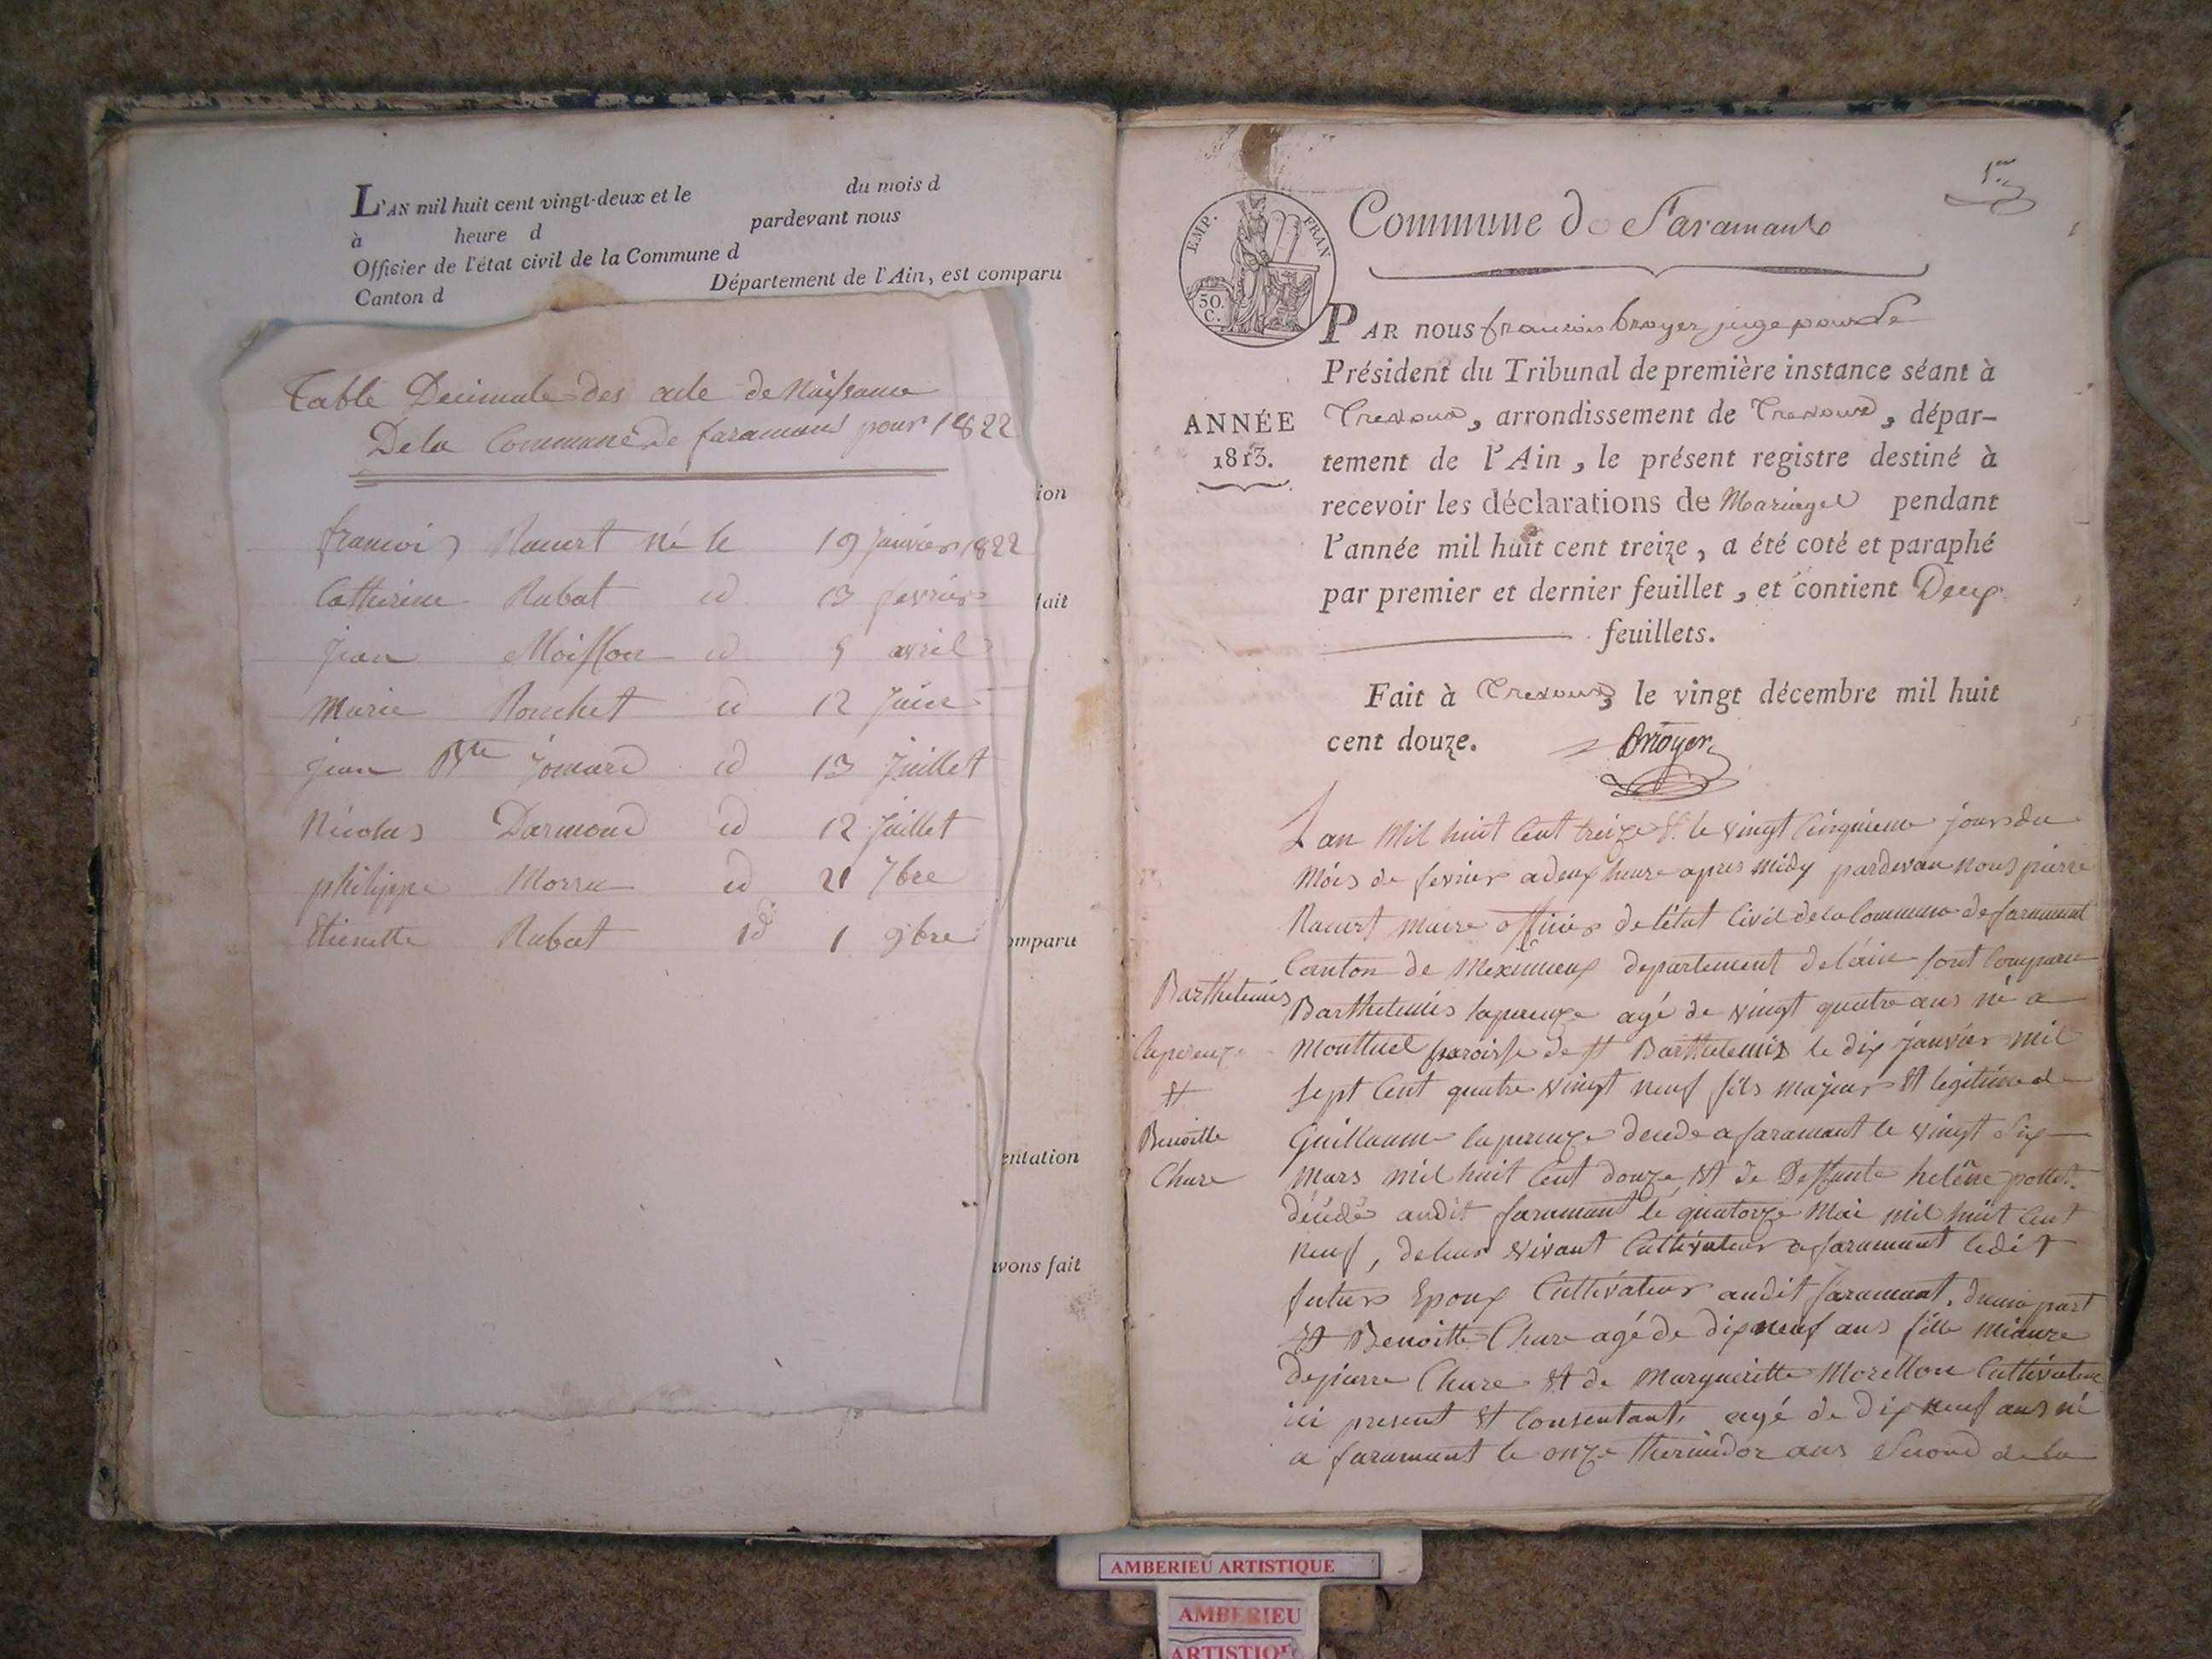 L'AN mil huit cent vingt-deux et le du mois d
à heure d pardevant nous
Officier de l'état civil de la Commune d
Canton d Département de l'Ain, est comparu
Table Decimale des acte de Naissance
De la Commune de faramans pour 1822
ion
francois Racurt né le 19 janvier 1822
Catherine Rubat id 13 fevrier
fait
jean Moisson id 5 avril
Marie Ronchet id 12 Juin
jean Bte jomard id 13 Juillet
Nicolas Darmond id 12 Juillet
philippe id 21 7bre
Etienette Rubat id 1 9bre
omparu
entation
vons fait
1er
EMP. FRAN
50. C.
Commune de Faramans
PAR nous francois broyer juge pour le
Président du Tribunal de première instance séant à
ANNÉE
1813.
Trevoux, arrondissement de Trevoux, dépar-
tement de l'Ain, le présent registre destiné à
recevoir les déclarations de Mariages pendant
l'année mil huit cent treize, a été coté et paraphé
par premier et dernier feuillet, et contient Deux
feuillets.
Fait à Trevoux, le vingt décembre mil huit
cent douze. Broyer
L an Mil huit Cent treize & le vingt Cinquieme jour du
Mois de fevrier a deux heure apres midy pardevan nous pierre
Racurt Maire officier de l'état Civil de la Commune de faramant
Canton de Meximieux departement de l'ain sont Comparu
Barthelemis
Barthelemis laperouze agé de vingt quatre ans né a
laperouze
Montluel paroisse de St Barthelemis le dix janvier mil
Et
sept Cent quatre vingt neuf fils majeur Et legitime de
Benoitte
Guillaume laperouze decede a faramant le vingt Six
Chure
Mars mil huit Cent douze Et de Deffunte helène pollet
décédé audit faramant le quatorze Mai mil huit Cent
neuf, de leur vivant Cultivateur a faramant ledit
futur Epoux Cultivateur audit faramant. d'une part
Et Benoitte Chure agé de dix neuf ans fille mineure
de pierre Chure Et de Margueritte Morellon Cultivateur
ici present Et Consentant, agé de dix neuf ans né
a faramant le onze thermidor ans Second de la
AMBERIEU ARTISTIQUE
AMBERIEU
ARTISTIQUE